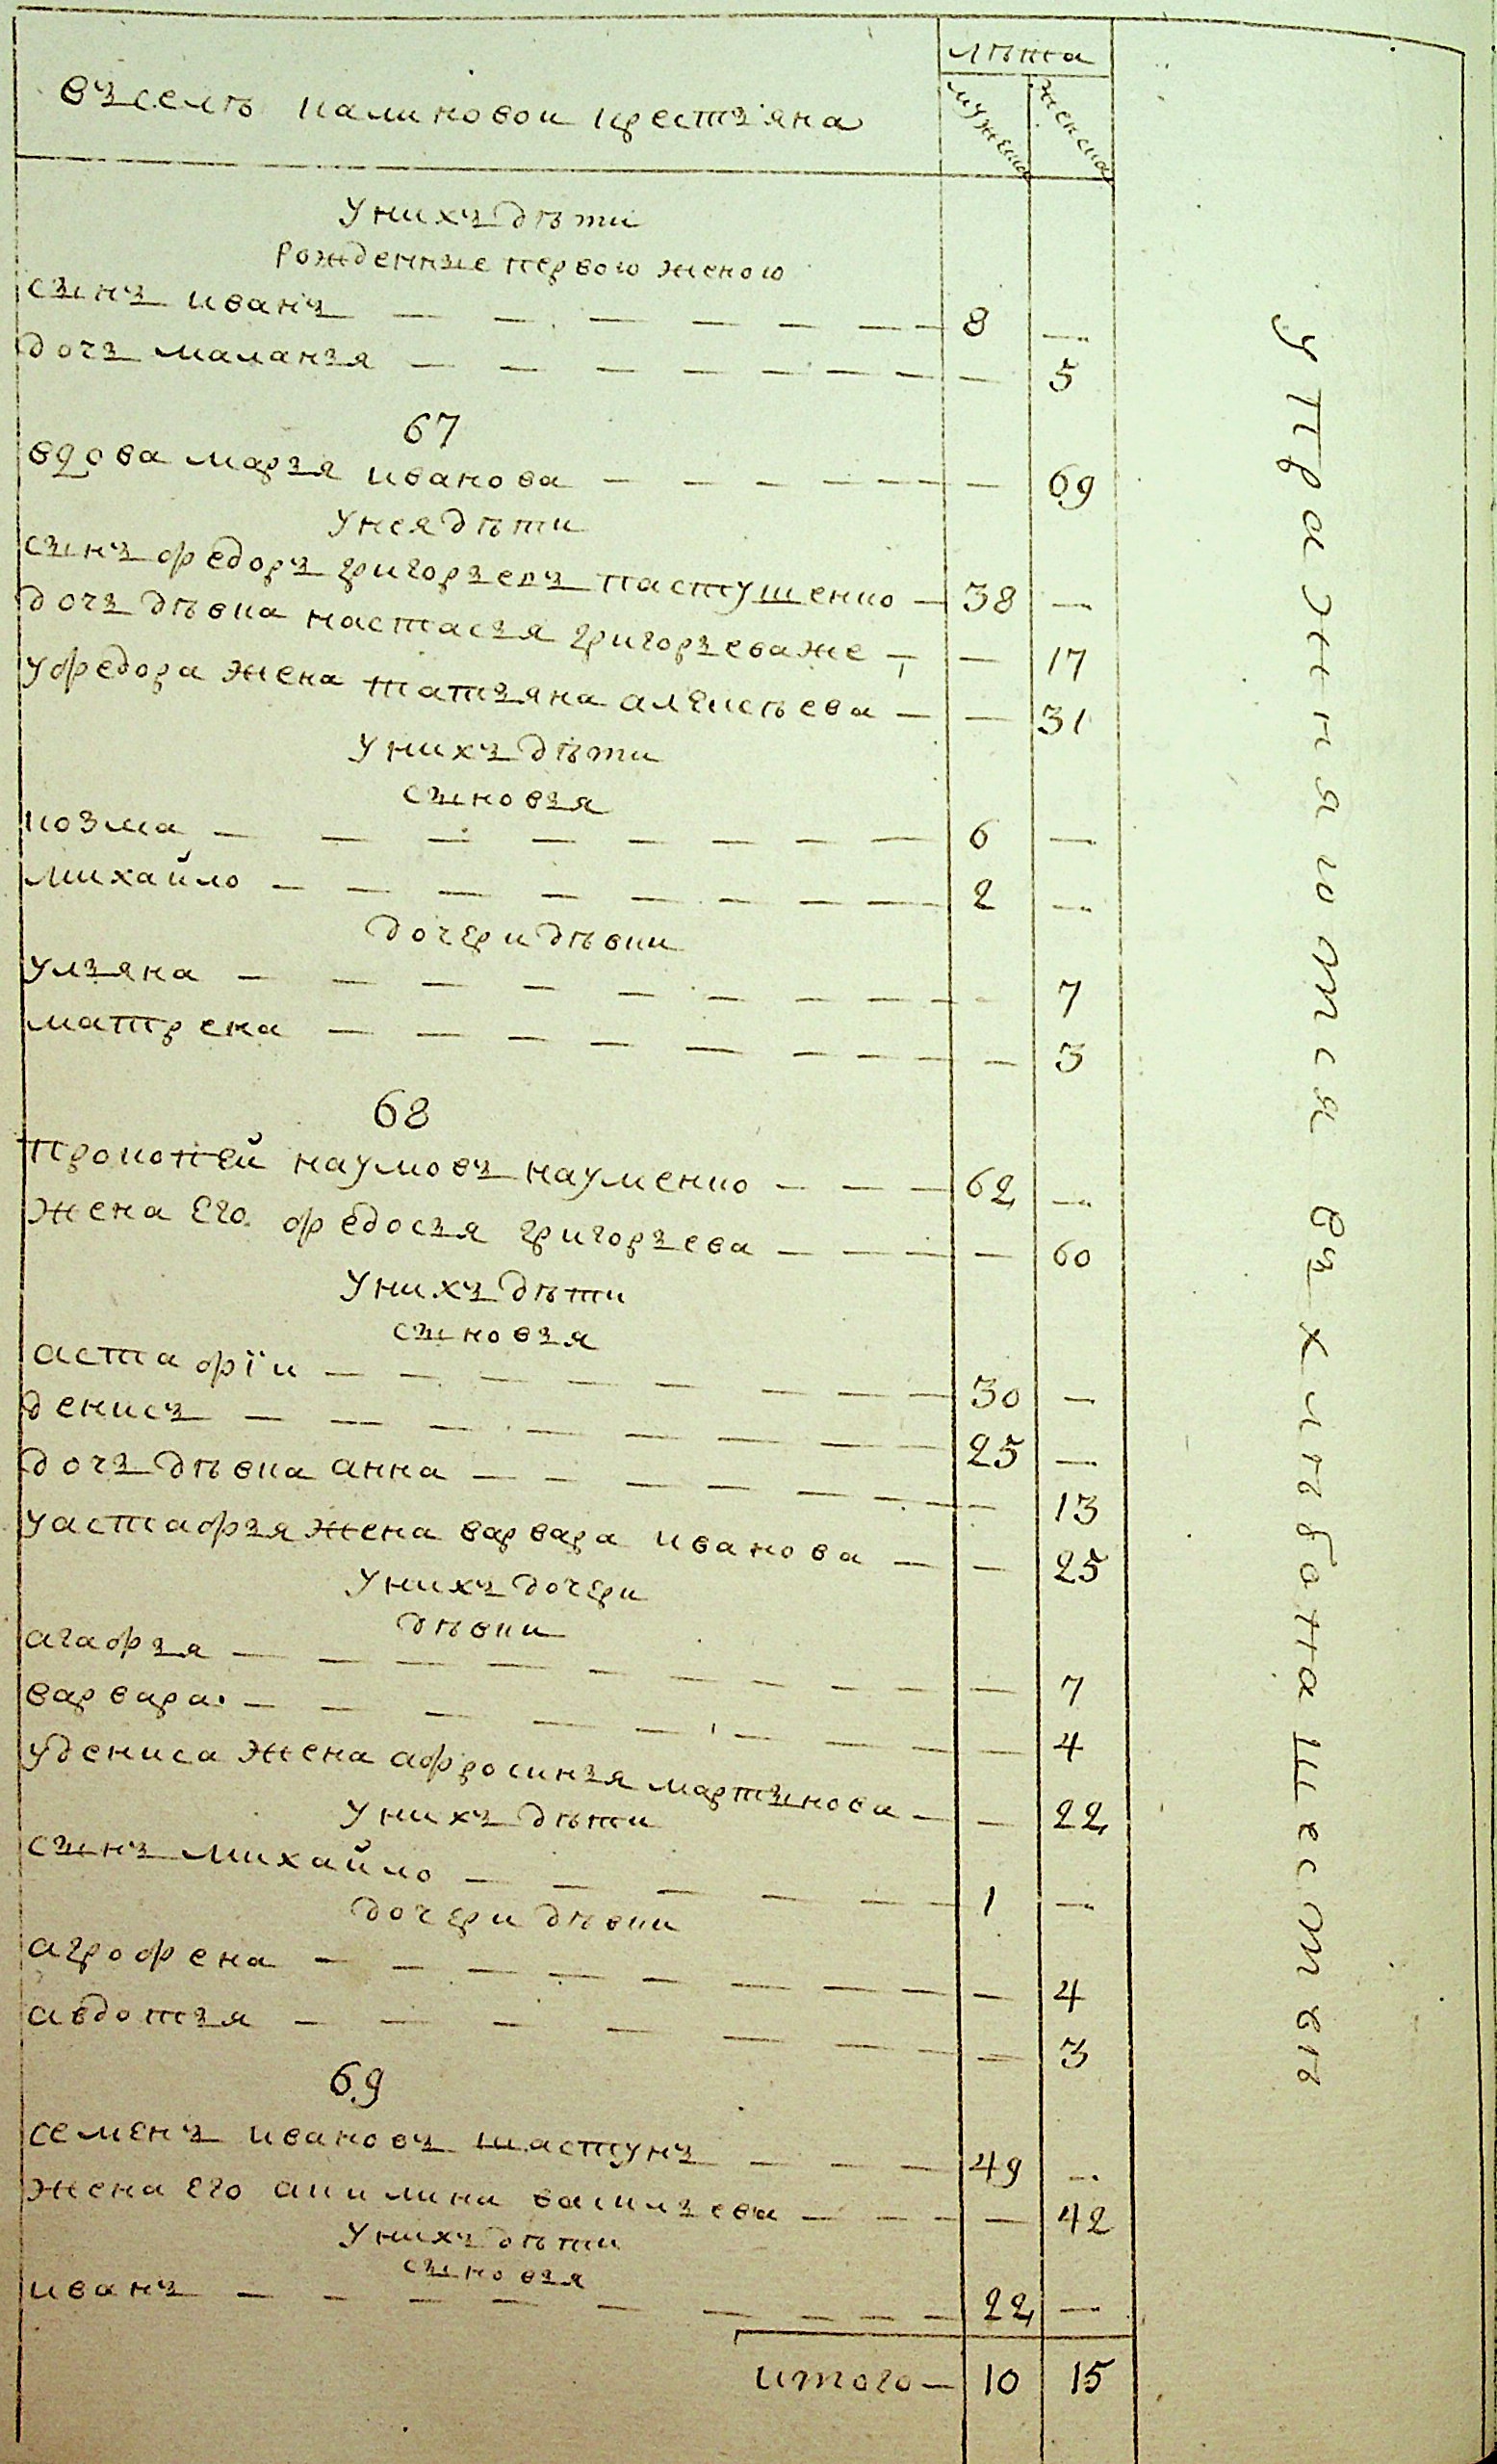 лѣта
въ селѣ калиновои крестьяна
мужеска
женска
у нихъ дѣти
рожденные первою женою
сынъ иванъ — — — — — — — 8 —
дочь маланья — — — — — — — — 5
67
вдова марья иванова — — — — — — — 69
у нея дѣти
сынъ федоръ григорьевъ пастушенко — 38 —
дочь дѣвка настасья григорьева же — — 17
у федора жена татьяна алексѣева — — 31
у нихъ дѣти
сыновья
козма — — — — — — — — 6 —
михайло — — — — — — — — 2 —
дочери дѣвки
ульяна — — — — — — — — — 7
матрена — — — — — — — — — 3
68
прокопей наумовъ науменко — — — 62 —
жена его федосья григорьева — — — — 60
у нихъ дѣти
сыновья
астафїи — — — — — — — — 30 —
денисъ — — — — — — — — 25 —
дочь дѣвка анна — — — — — — — 13
у астафья жена варвара иванова — — 25
у нихъ дочери
дѣвки
агафья — — — — — — — — — 7
варвара — — — — — — — — — 4
у дениса жена афросинья мартынова — — 22
у нихъ дѣти
сынъ михайло — — — — — — 1 —
дочери дѣвки
агрофена — — — — — — — — — 4
авдотья — — — — — — — — 3
69
семенъ ивановъ шастунъ — — — 49 —
жена его акилина васильева — — — — — 42
у нихъ дѣти
сыновья
иванъ — — — — — — — — — 22 —
итого — 10 15
упражняются въ хлѣбопашествѣ